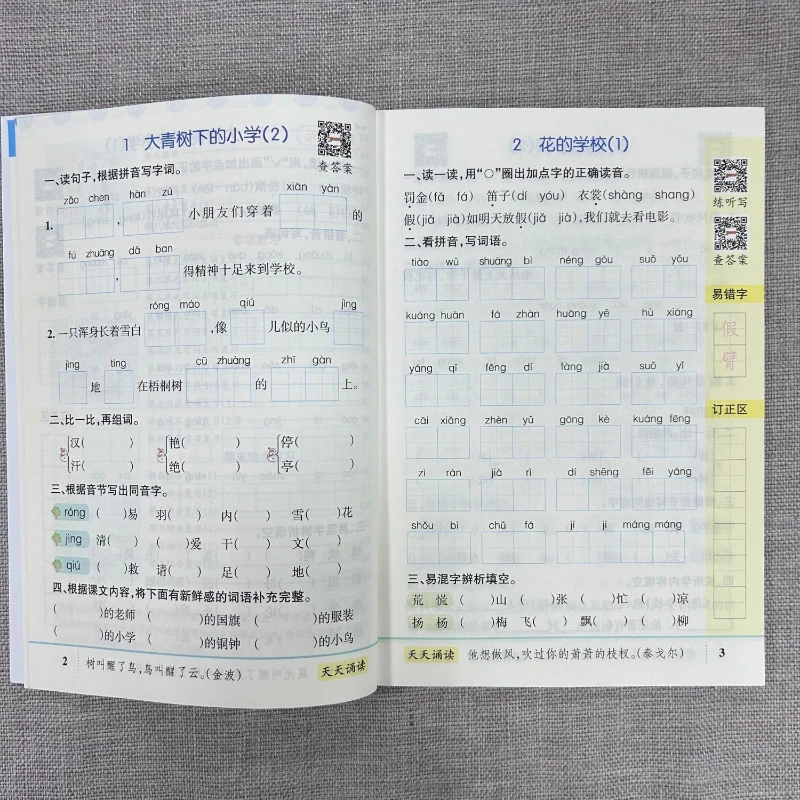 1 大青树下的小学(2)
查答案
一、读句子,根据拼音写字词。
zǎo chen hàn zú xiān yàn
1. , 小朋友们穿着 的
fú zhuāng dǎ ban
, 得精神十足来到学校。
róng máo qiú jìng
2. 一只浑身长着雪白 ,像 儿似的小鸟
jìng tíng cū zhuàng zhī gàn
地 在梧桐树 的 上。
二、比一比,再组词。
汉( ) 艳( ) 停( )
汗( ) 绝( ) 亭( )
三、根据音节写出同音字。
róng ( )易 羽( ) 内( ) 雪( )花
jìng 清( ) ( )爱 干( ) 文( )
qiú ( )救 请( ) 足( ) 地( )
四、根据课文内容,将下面有新鲜感的词语补充完整。
( )的老师 ( )的国旗 ( )的服装
( )的小学 ( )的铜钟 ( )的小鸟
2 树叫醒了鸟,鸟叫醒了云。(金波) 天天诵读
2 花的学校(1)
一、读一读,用“○”圈出加点字的正确读音。
罚金(fǎ fá) 笛子(dí yóu) 衣裳(shàng shang)
假(jiǎ jià)如明天放假(jiǎ jià),我们就去看电影。
二、看拼音,写词语。
tiào wǔ shuāng bì néng gòu suǒ yǒu
kuáng huān fá zhàn huāng yě hù xiāng
yáng qǐ fēng dí fàng jià suǒ yǐ
cāi xiǎng zhèn yǔ gōng kè kuáng fēng
zì rán jià rì dí shēng fēi yáng
shǒu bì chǔ fá jí jí máng máng
三、易混字辨析填空。
荒 慌 ( )山 ( )张 ( )忙 ( )凉
扬 杨 ( )梅 飞( ) 飘( ) ( )柳
天天诵读 他想做风,吹过你的萧萧的枝杈。(泰戈尔) 3
练听写
查答案
易错字
假
臂
订正区